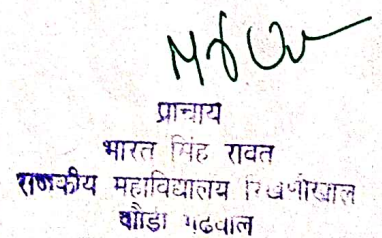 प्राचार्य
भारत सिंह रावत
राजकीय महाविद्यालय रिखणीखाल
पौड़ी गढवाल